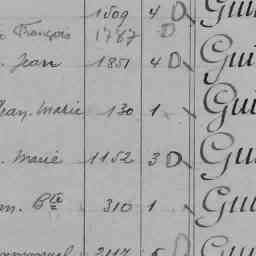 1509 4 D Gui
François 1787 D
Jean 1851 4 D Gui
Jean Marie 130 1 Gui
Marie 1152 3 D Gui
Bte 310 1 Gui
Emmanuel Gui